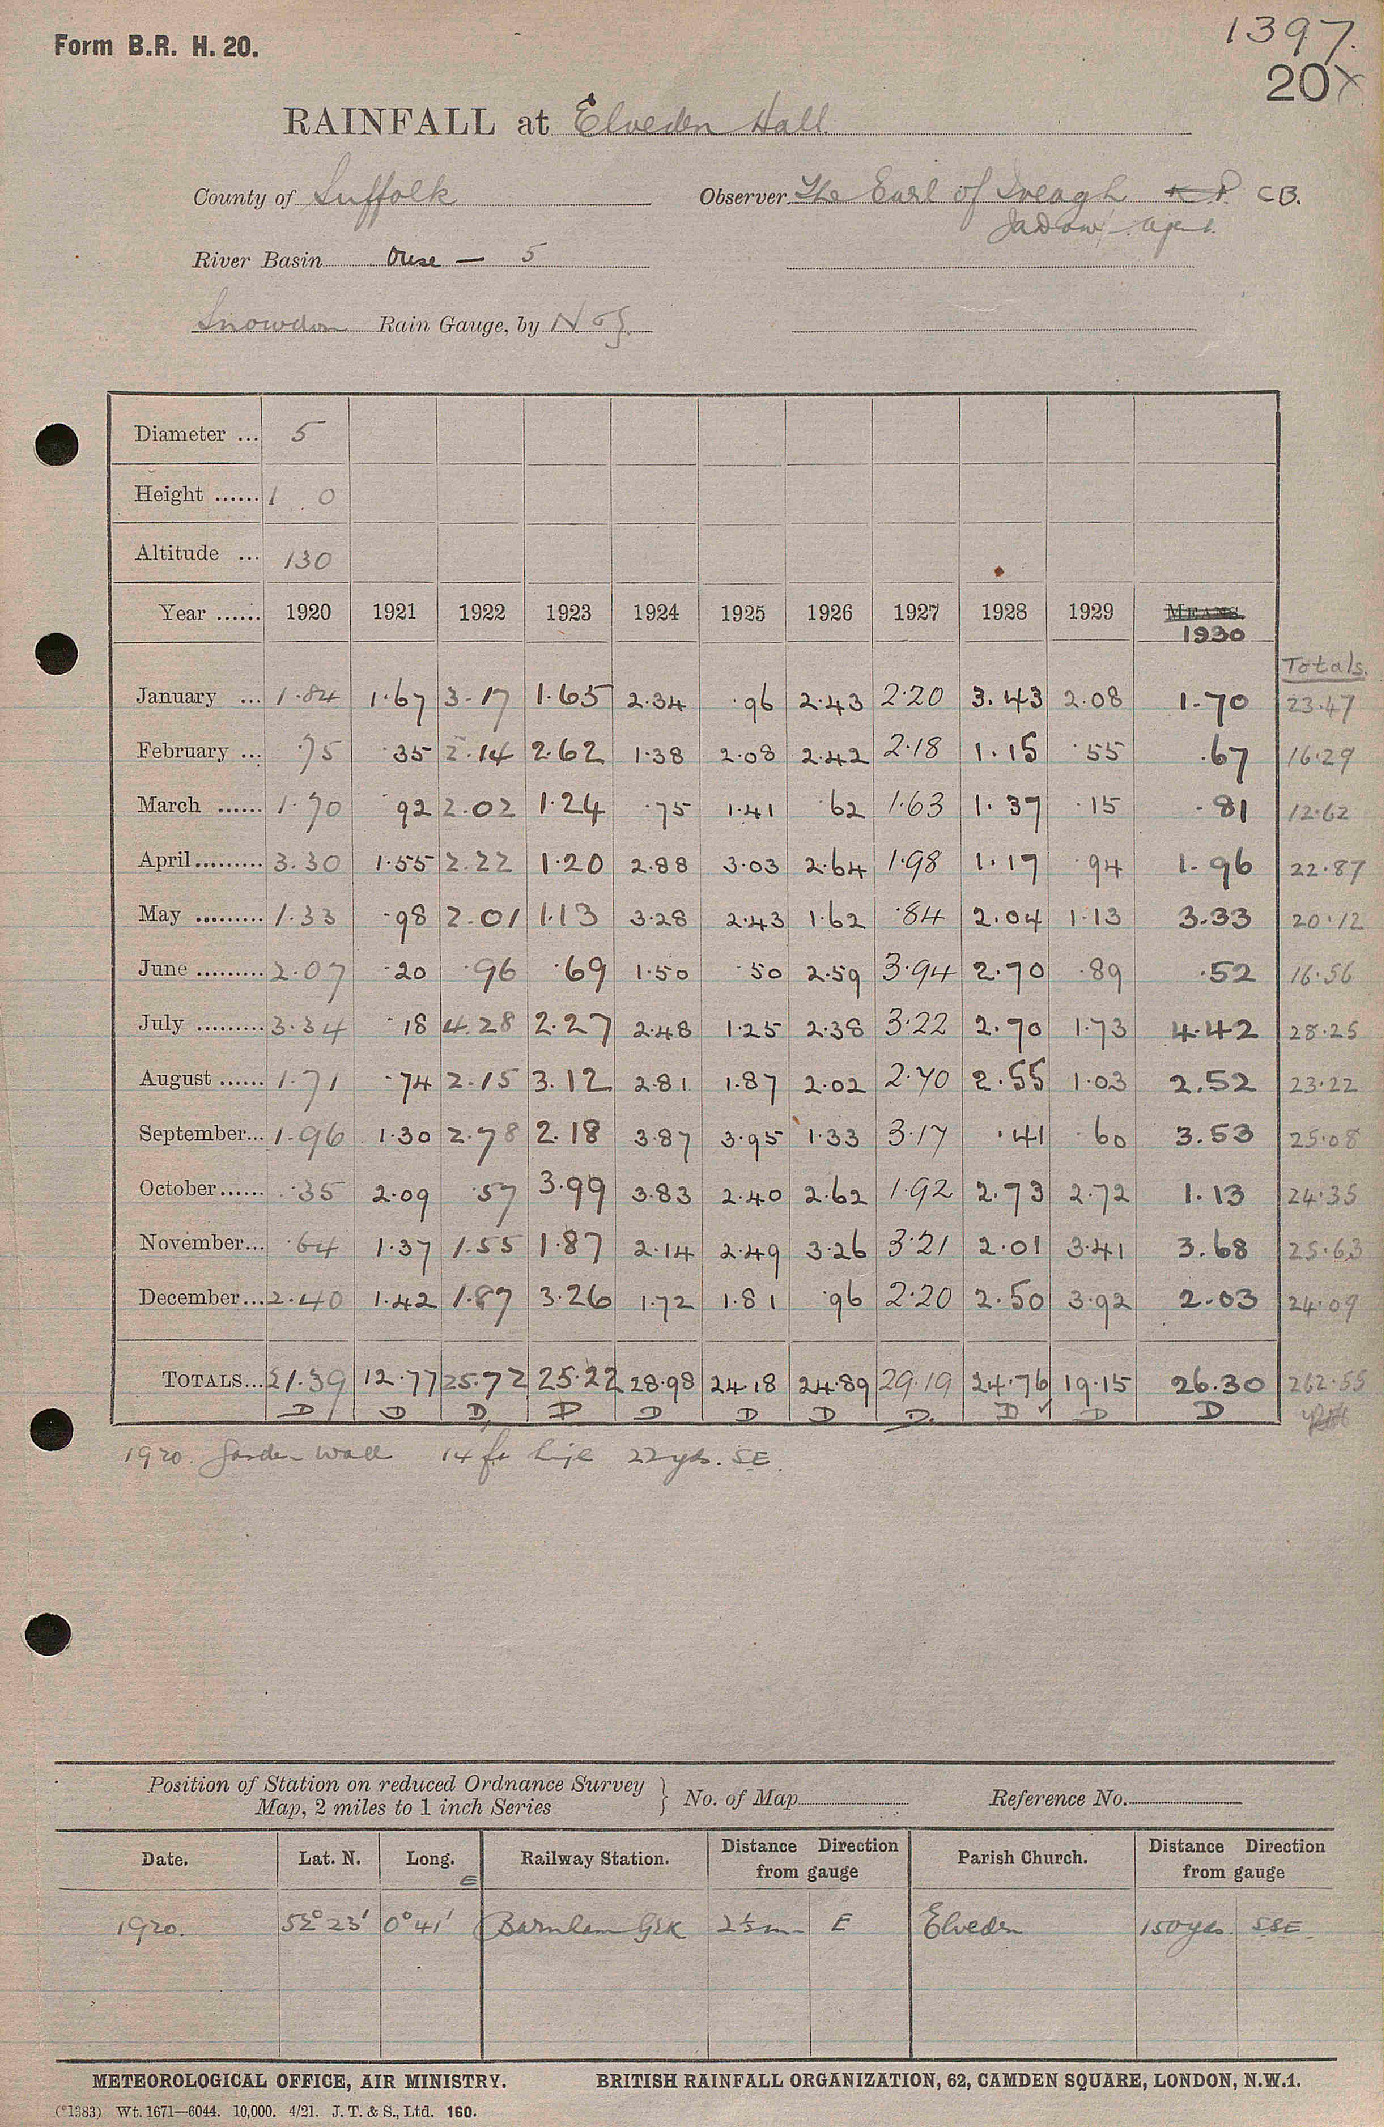 Form B.R. H. 20.
1397.
20x
RAINFALL at Elveden Hall
County of Suffolk Observer The Earl of Iveagh K P. CB.
agent
River Basin Ouse — 5
Snowdon Rain Gauge, by N & Z
Diameter ... 5
Height ...... 1 0
Altitude ... 130
Year ...... 1920 1921 1922 1923 1924 1925 1926 1927 1928 1929 MEANS
1930
Totals.
January ... 1.84 1.67 3.17 1.65 2.34 .96 2.43 2.20 3.43 2.08 1.70 23.47
February ... .75 .35 2.14 2.62 1.38 2.08 2.42 2.18 1.15 .55 .67 16.29
March ...... 1.70 .92 2.02 1.24 .75 1.41 .62 1.63 1.37 .15 .81 12.62
April ......... 3.30 1.55 2.22 1.20 2.88 3.03 2.64 1.98 1.17 .94 1.96 22.87
May ......... 1.33 .98 2.01 1.13 3.28 2.43 1.62 .84 2.04 1.13 3.33 20.12
June ......... 2.07 .20 .96 .69 1.50 .50 2.59 3.94 2.70 .89 .52 16.56
July ......... 3.34 .18 4.28 2.27 2.48 1.25 2.38 3.22 2.70 1.73 4.42 28.25
August ...... 1.71 .74 2.15 3.12 2.81 1.87 2.02 2.70 2.55 1.03 2.52 23.22
September... 1.96 1.30 2.78 2.18 3.87 3.95 1.33 3.17 .41 .60 3.53 25.08
October ...... .35 2.09 .57 3.99 3.83 2.40 2.62 1.92 2.73 2.72 1.13 24.35
November... .64 1.37 1.55 1.87 2.14 2.49 3.26 3.21 2.01 3.41 3.68 25.63
December... 2.40 1.42 1.87 3.26 1.72 1.81 .96 2.20 2.50 3.92 2.03 24.09
TOTALS... 21.39 12.77 25.72 25.22 28.98 24.18 24.89 29.19 24.76 19.15 26.30 262.55
D D D D D D D D. D ✓ D D
1920. Garden wall 14 ft high 22 yds. SE
Position of Station on reduced Ordnance Survey
Map, 2 miles to 1 inch Series } No. of Map Reference No.
Date. Lat. N. Long. E Railway Station. Distance Direction from gauge Parish Church. Distance Direction from gauge
1920. 52° 23' 0° 41' Barnham 2½ m E Elveden 150 yds SSE
METEOROLOGICAL OFFICE, AIR MINISTRY. BRITISH RAINFALL ORGANIZATION, 62, CAMDEN SQUARE, LONDON, N.W.1.
(*1383) Wt. 1671—6044. 10,000. 4/21. J. T. & S., Ltd. 160.